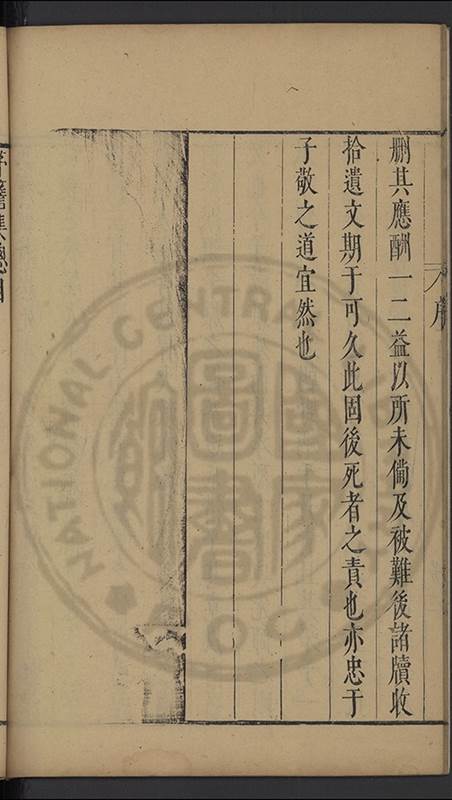 序
刪其應酬一二益以所未備及被難後諸牘收
拾遺文期于可久此固後死者之責也亦忠于
子敬之道宜然也
NATIONAL CENTRAL